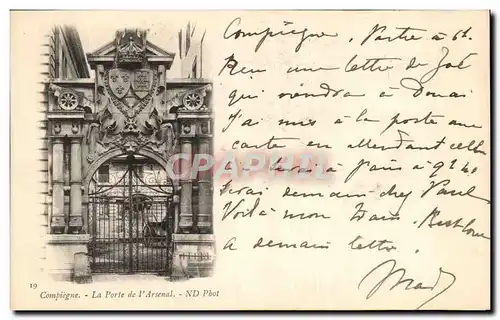 Compiègne. Partie à 6h.
Reçu une lettre de José
qui viendra à Douai
J'ai mis à la poste une
carte en attendant celle
à Paris à 9h40
Serai demain chez Paul
Voilà mon
à demain lettre.
Carte-Photo
19
Compiègne. - La Porte de l'Arsenal. - ND Phot